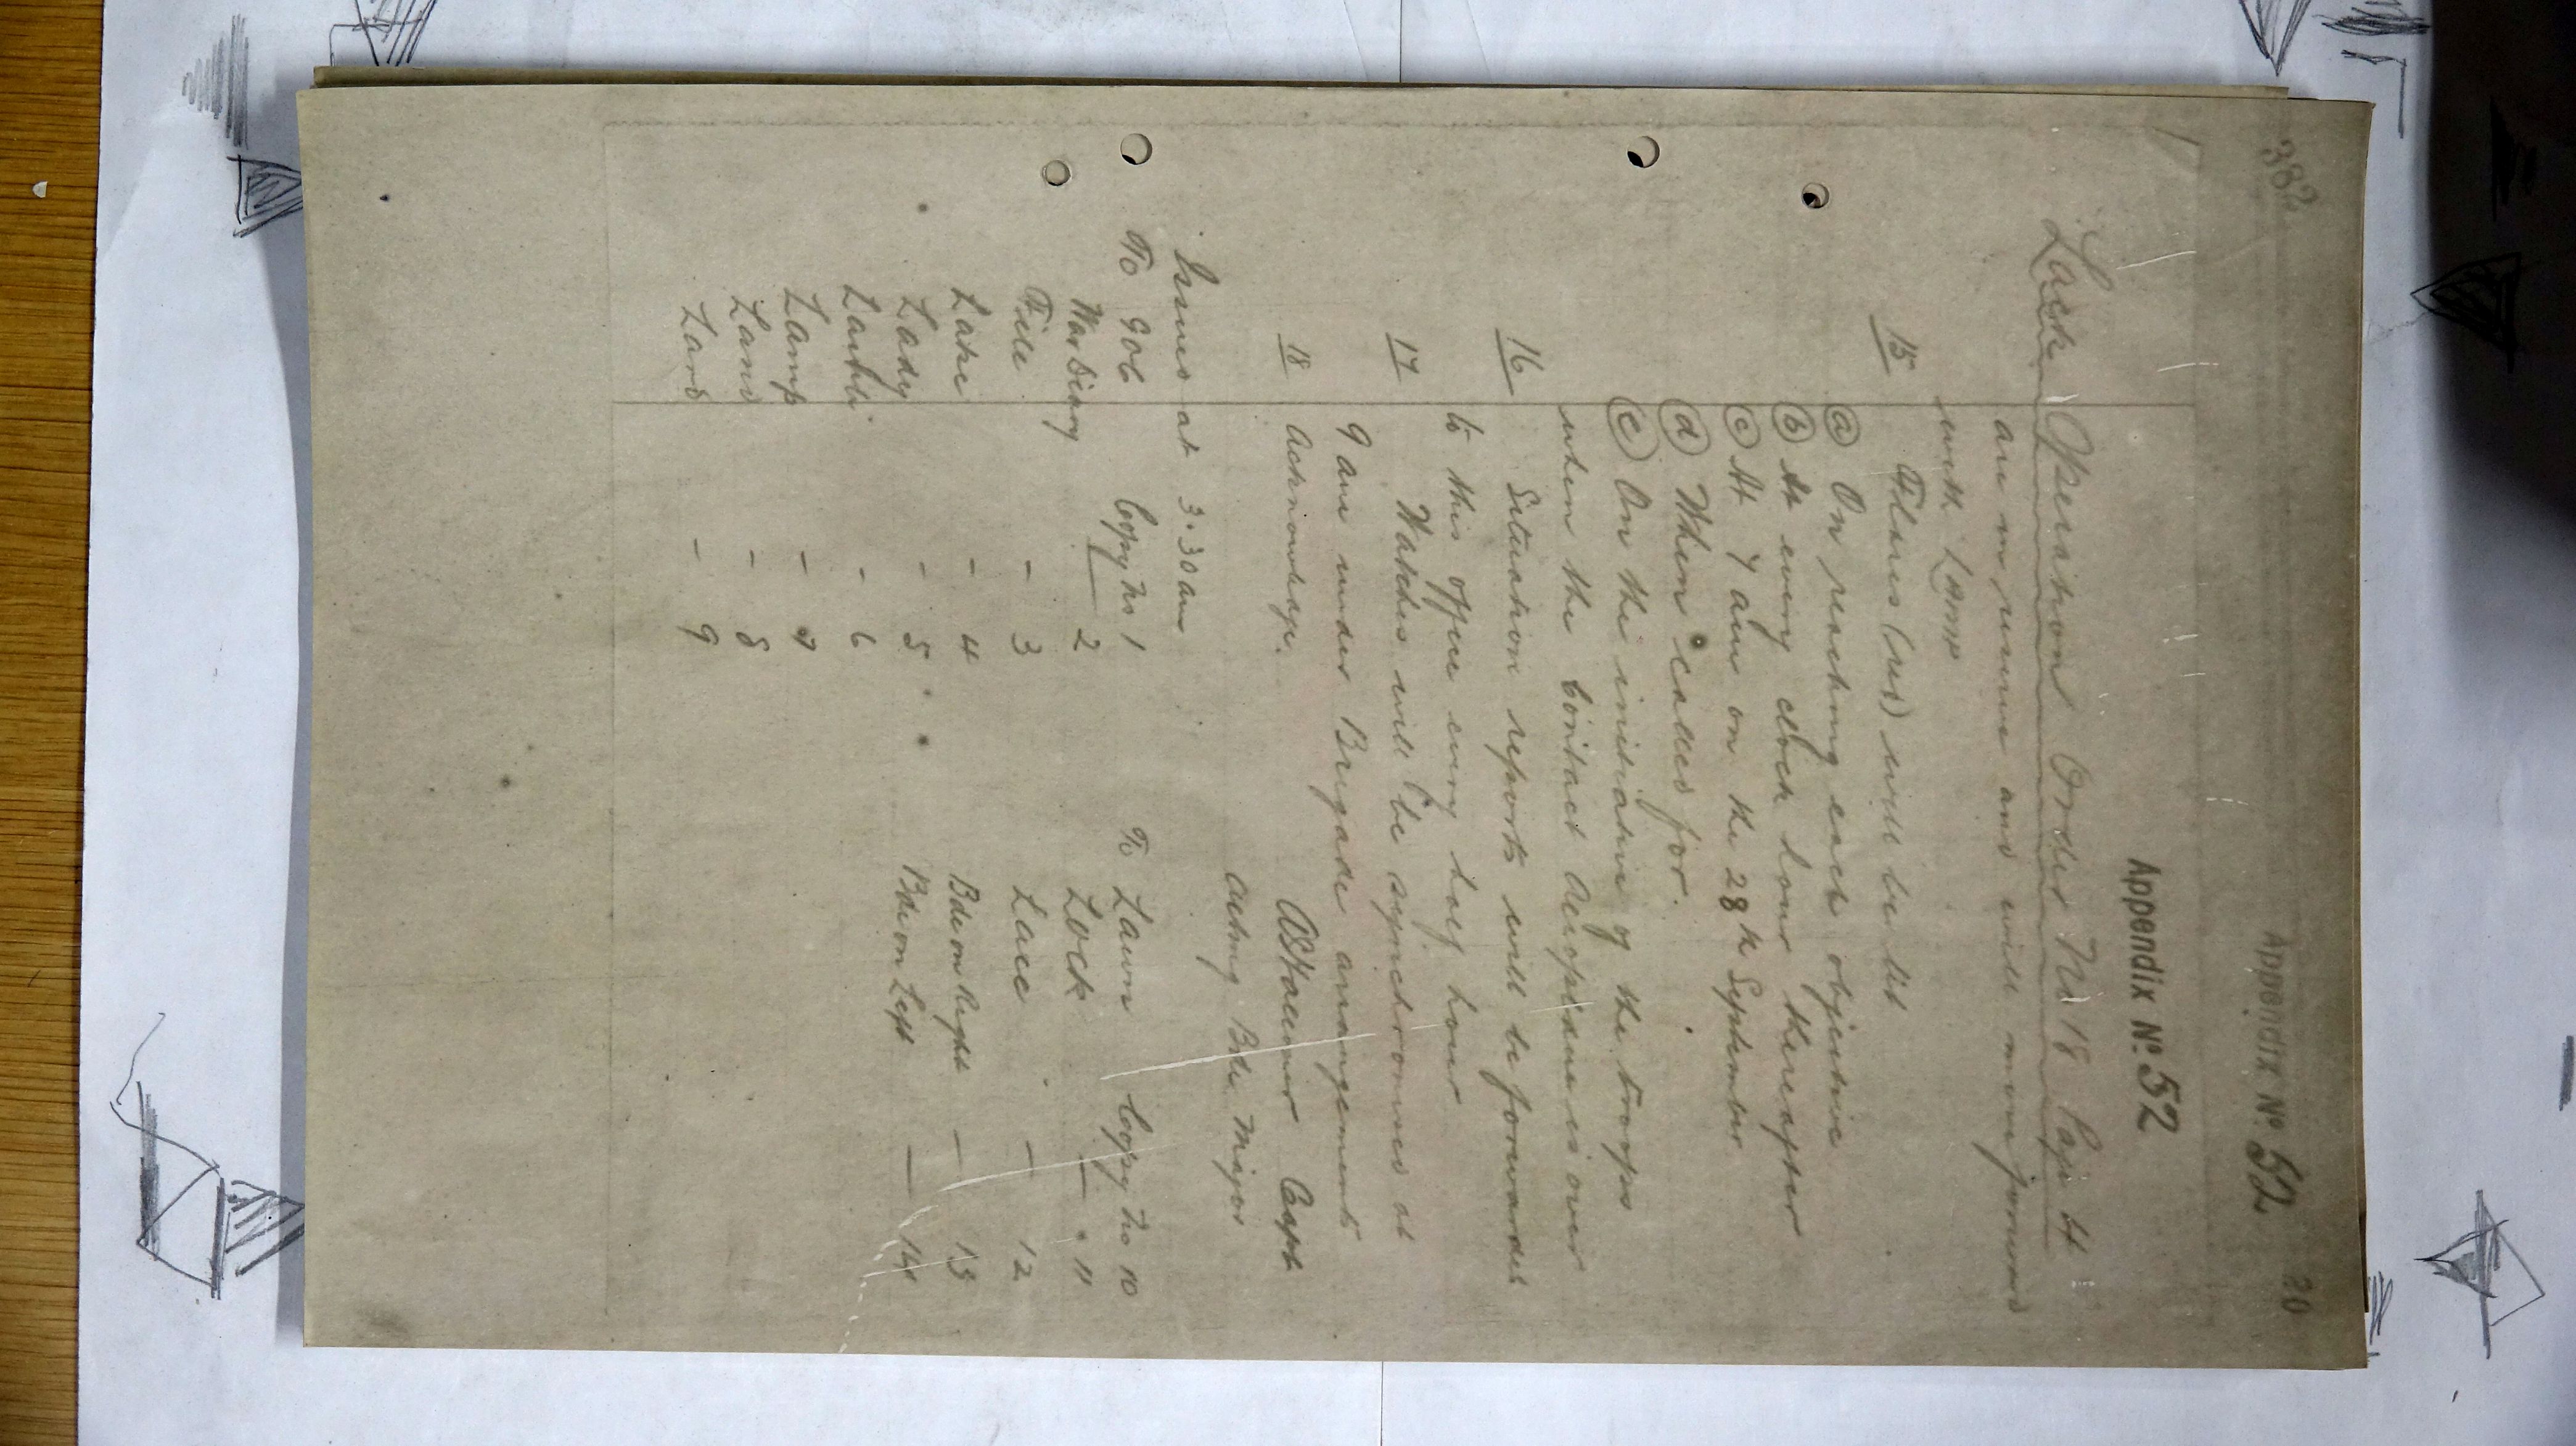 382
20
Appendix Nº 52
Appendix Nº 52
Lack Operations Order No 18 Page 4
are in reserve and will move forward
with Lamp
15 Flares (red) will be lit
(a) On reaching each objective
(b) At every clock hour thereafter
(c) At 7 am on the 28th September
(d) When called for.
(e) On the initiative of the troops
when the Contact Aeroplane is over
16 Situation reports will be forwarded
to this office every half hour
17 Watches will be synchronised at
9 am under Brigade arrangements
18 Acknowledge.
Capt
Acting Bde Major
Issued at 3.30 am
To GOC Copy No 1 To Lawn Copy No 10
War Diary — 2 Lock — 11
File - 3 Lace - 12
Lake - 4 Bde on Right — 13
Lady - 5 Bde on Left — 14
- 6
Lamp - 7
Land - 8
Lard - 9